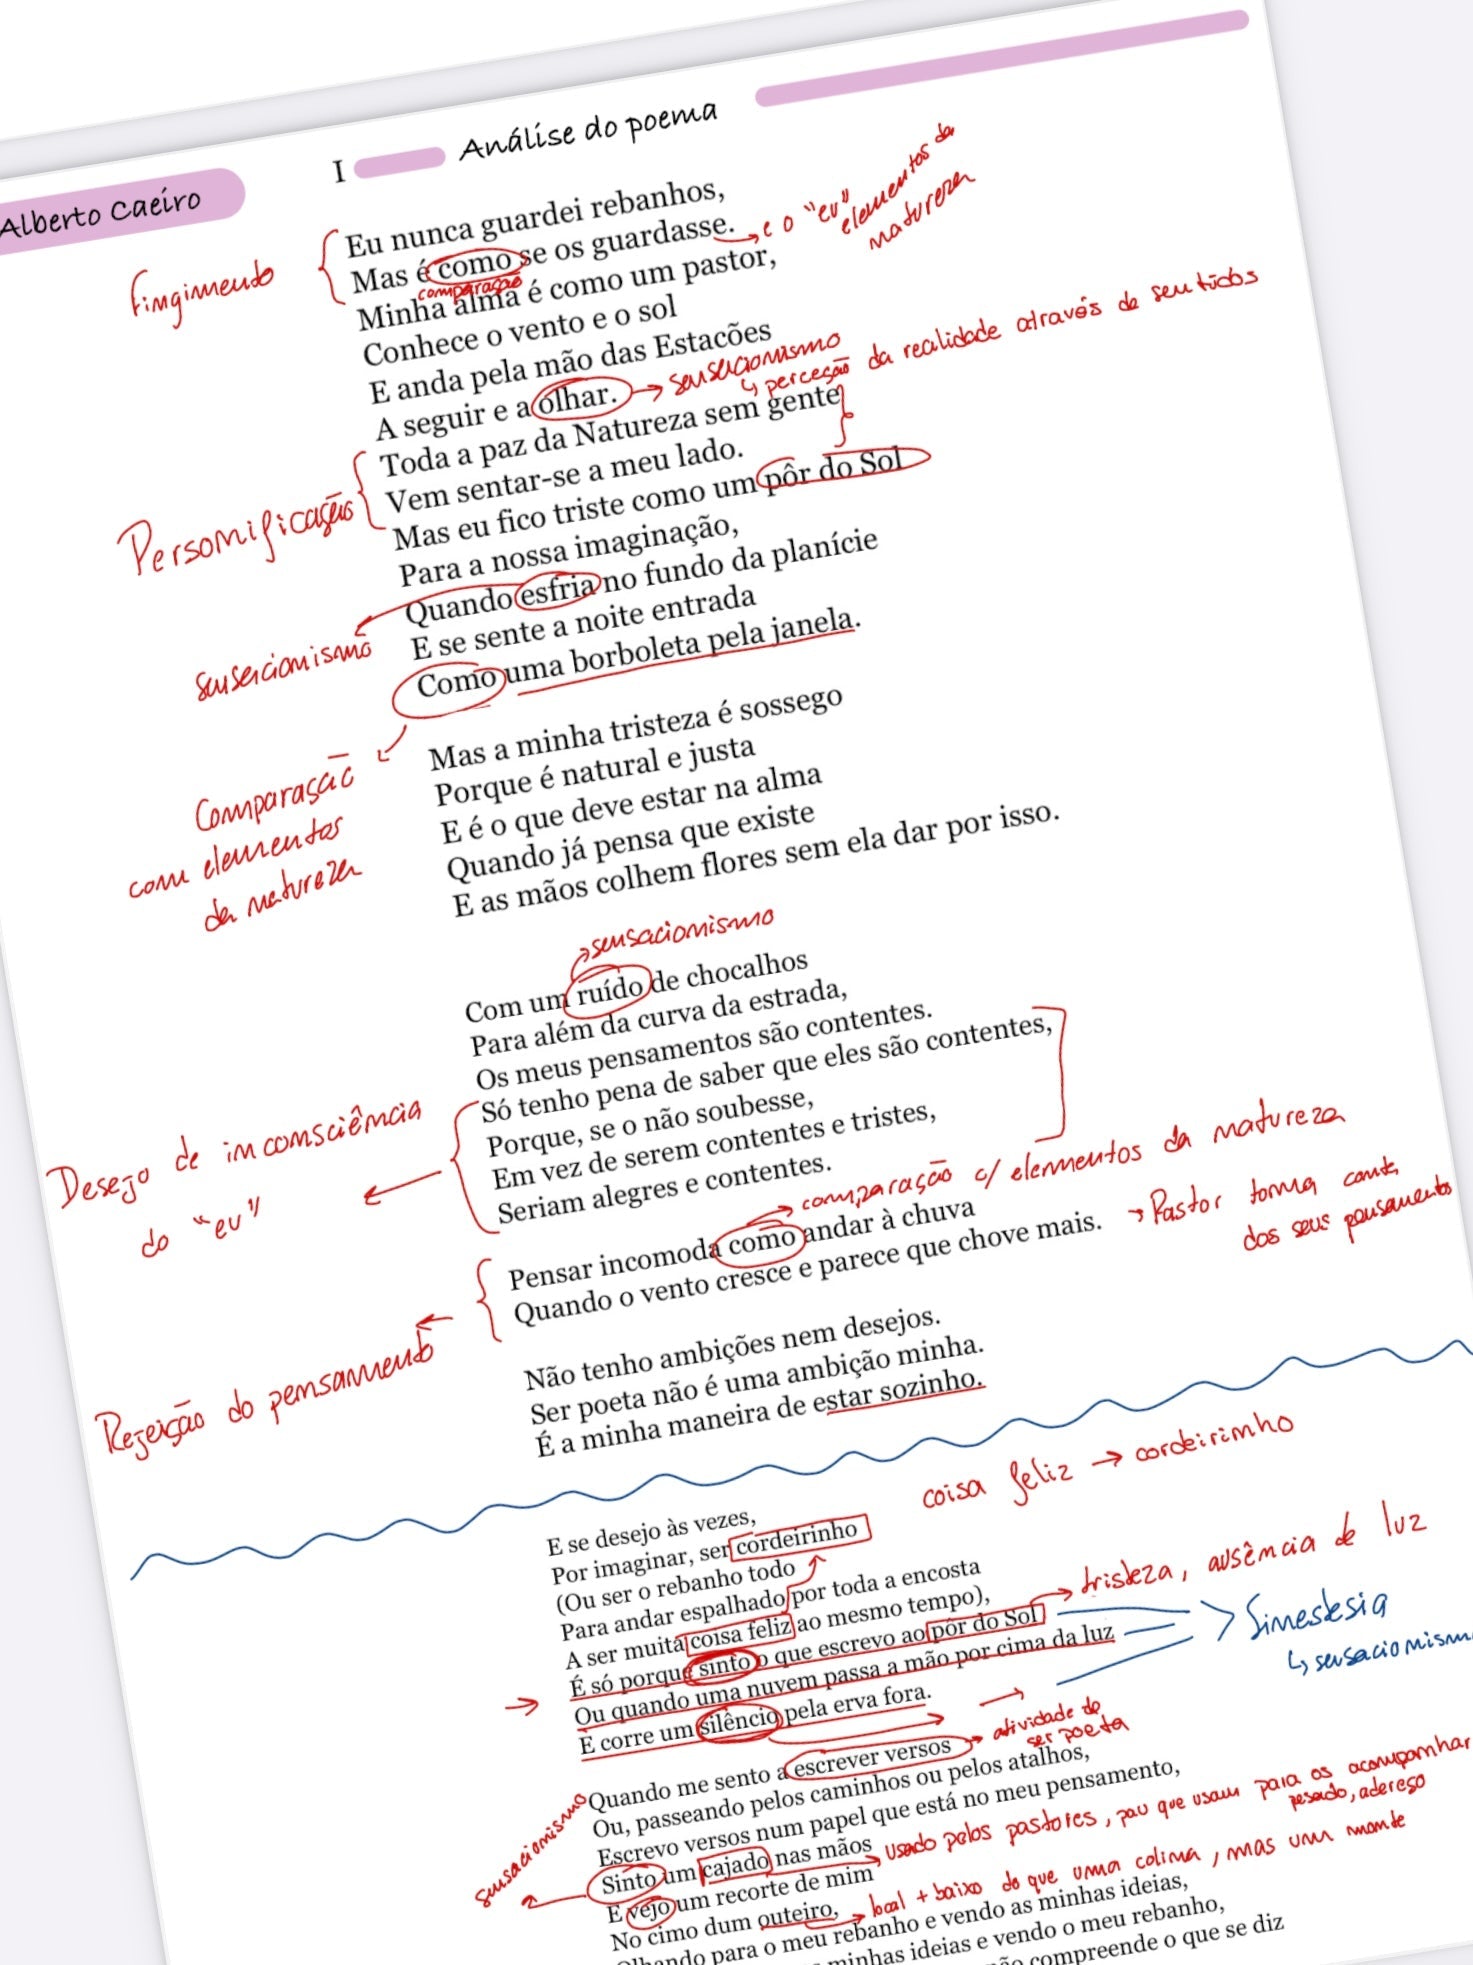 Alberto Caeiro
I
Análise do poema
Eu nunca guardei rebanhos,
Mas é como se os guardasse. e o "eu" elementos da natureza
comparação
Fingimento
Minha alma é como um pastor,
Conhece o vento e o sol
E anda pela mão das Estacões
A seguir e a olhar. → sensacionismo
↳ perceção da realidade através de sentidos
Toda a paz da Natureza sem gente
Vem sentar-se a meu lado.
Mas eu fico triste como um pôr do Sol
Personificação
Para a nossa imaginação,
Quando esfria no fundo da planície
E se sente a noite entrada
sensacionismo
Como uma borboleta pela janela.
Comparação
com elementos
da natureza
Mas a minha tristeza é sossego
Porque é natural e justa
E é o que deve estar na alma
Quando já pensa que existe
E as mãos colhem flores sem ela dar por isso.
sensacionismo
Com um ruído de chocalhos
Para além da curva da estrada,
Os meus pensamentos são contentes.
Só tenho pena de saber que eles são contentes,
Porque, se o não soubesse,
Em vez de serem contentes e tristes,
Seriam alegres e contentes.
Desejo de inconsciência
do "eu"
→ comparação c/ elementos da natureza
Pensar incomoda como andar à chuva
Quando o vento cresce e parece que chove mais.
→ Pastor toma conta
dos seus pensamentos
Rejeição do pensamento
Não tenho ambições nem desejos.
Ser poeta não é uma ambição minha.
É a minha maneira de estar sozinho.
coisa feliz → cordeirinho
E se desejo às vezes,
Por imaginar, ser cordeirinho
(Ou ser o rebanho todo
Para andar espalhado por toda a encosta
A ser muita coisa feliz ao mesmo tempo),
É só porque sinto o que escrevo ao pôr do Sol
→ tristeza, ausência de luz
Ou quando uma nuvem passa a mão por cima da luz
E corre um silêncio pela erva fora.
Sinestesia
↳ sensacionism
Quando me sento a escrever versos → atividade de
ser poeta
Ou, passeando pelos caminhos ou pelos atalhos,
Escrevo versos num papel que está no meu pensamento,
Sinto um cajado nas mãos → usado pelos pastores, pau que usam para os acompanhar
pesado, adereço
sensacionismo
E vejo um recorte de mim
No cimo dum outeiro, → local + baixo do que uma colina, mas um monte
Olhando para o meu rebanho e vendo as minhas ideias,
minhas ideias e vendo o meu rebanho,
compreende o que se diz